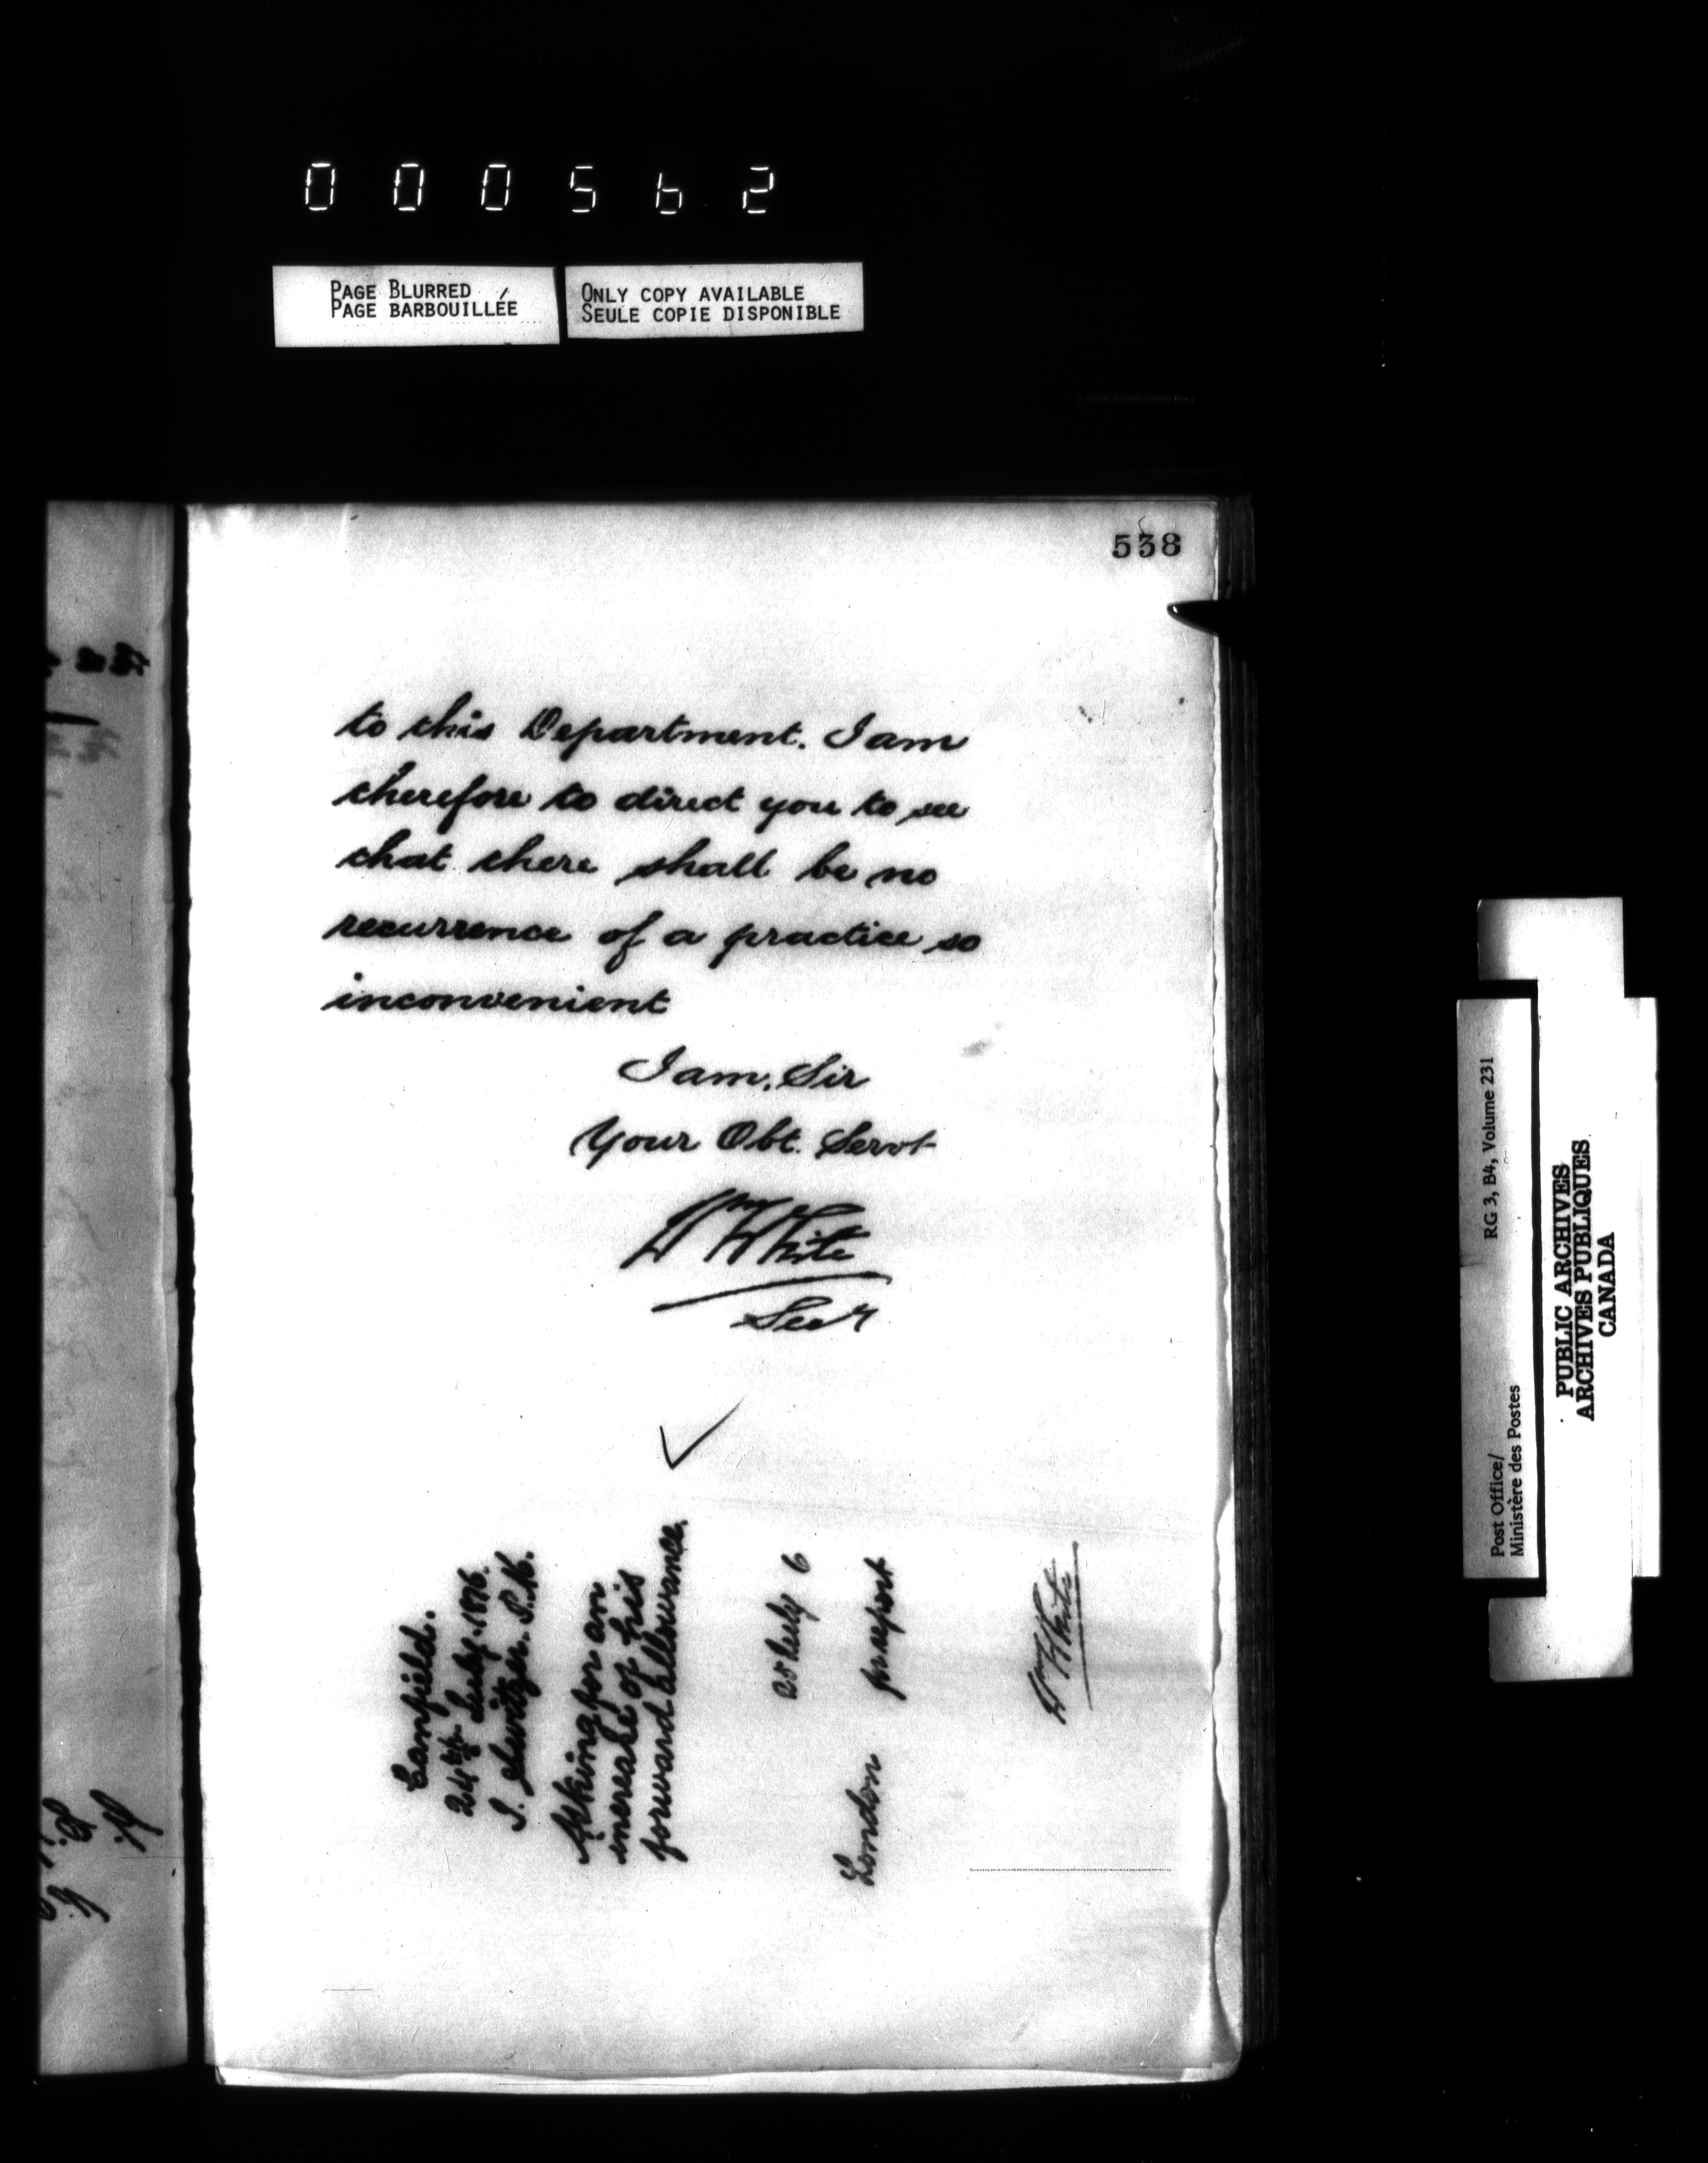 000562
PAGE BLURRED
PAGE BARBOUILLÉE
ONLY COPY AVAILABLE
SEULE COPIE DISPONIBLE
538
to this Department. I am
therefore to direct you to see
that there shall be no
recurrence of a practice so
inconvenient
I am, Sir
Your Obt. Servt
Wm White
Secy
Canfield.
24th July. 1876.
I. Switzer. P.M.
Asking for an
increase of his
forward allowance.
25 July 6
London for report
Wm White
Post Office/
Ministère des Postes
RG 3, B4, Volume 231
PUBLIC ARCHIVES
ARCHIVES PUBLIQUES
CANADA